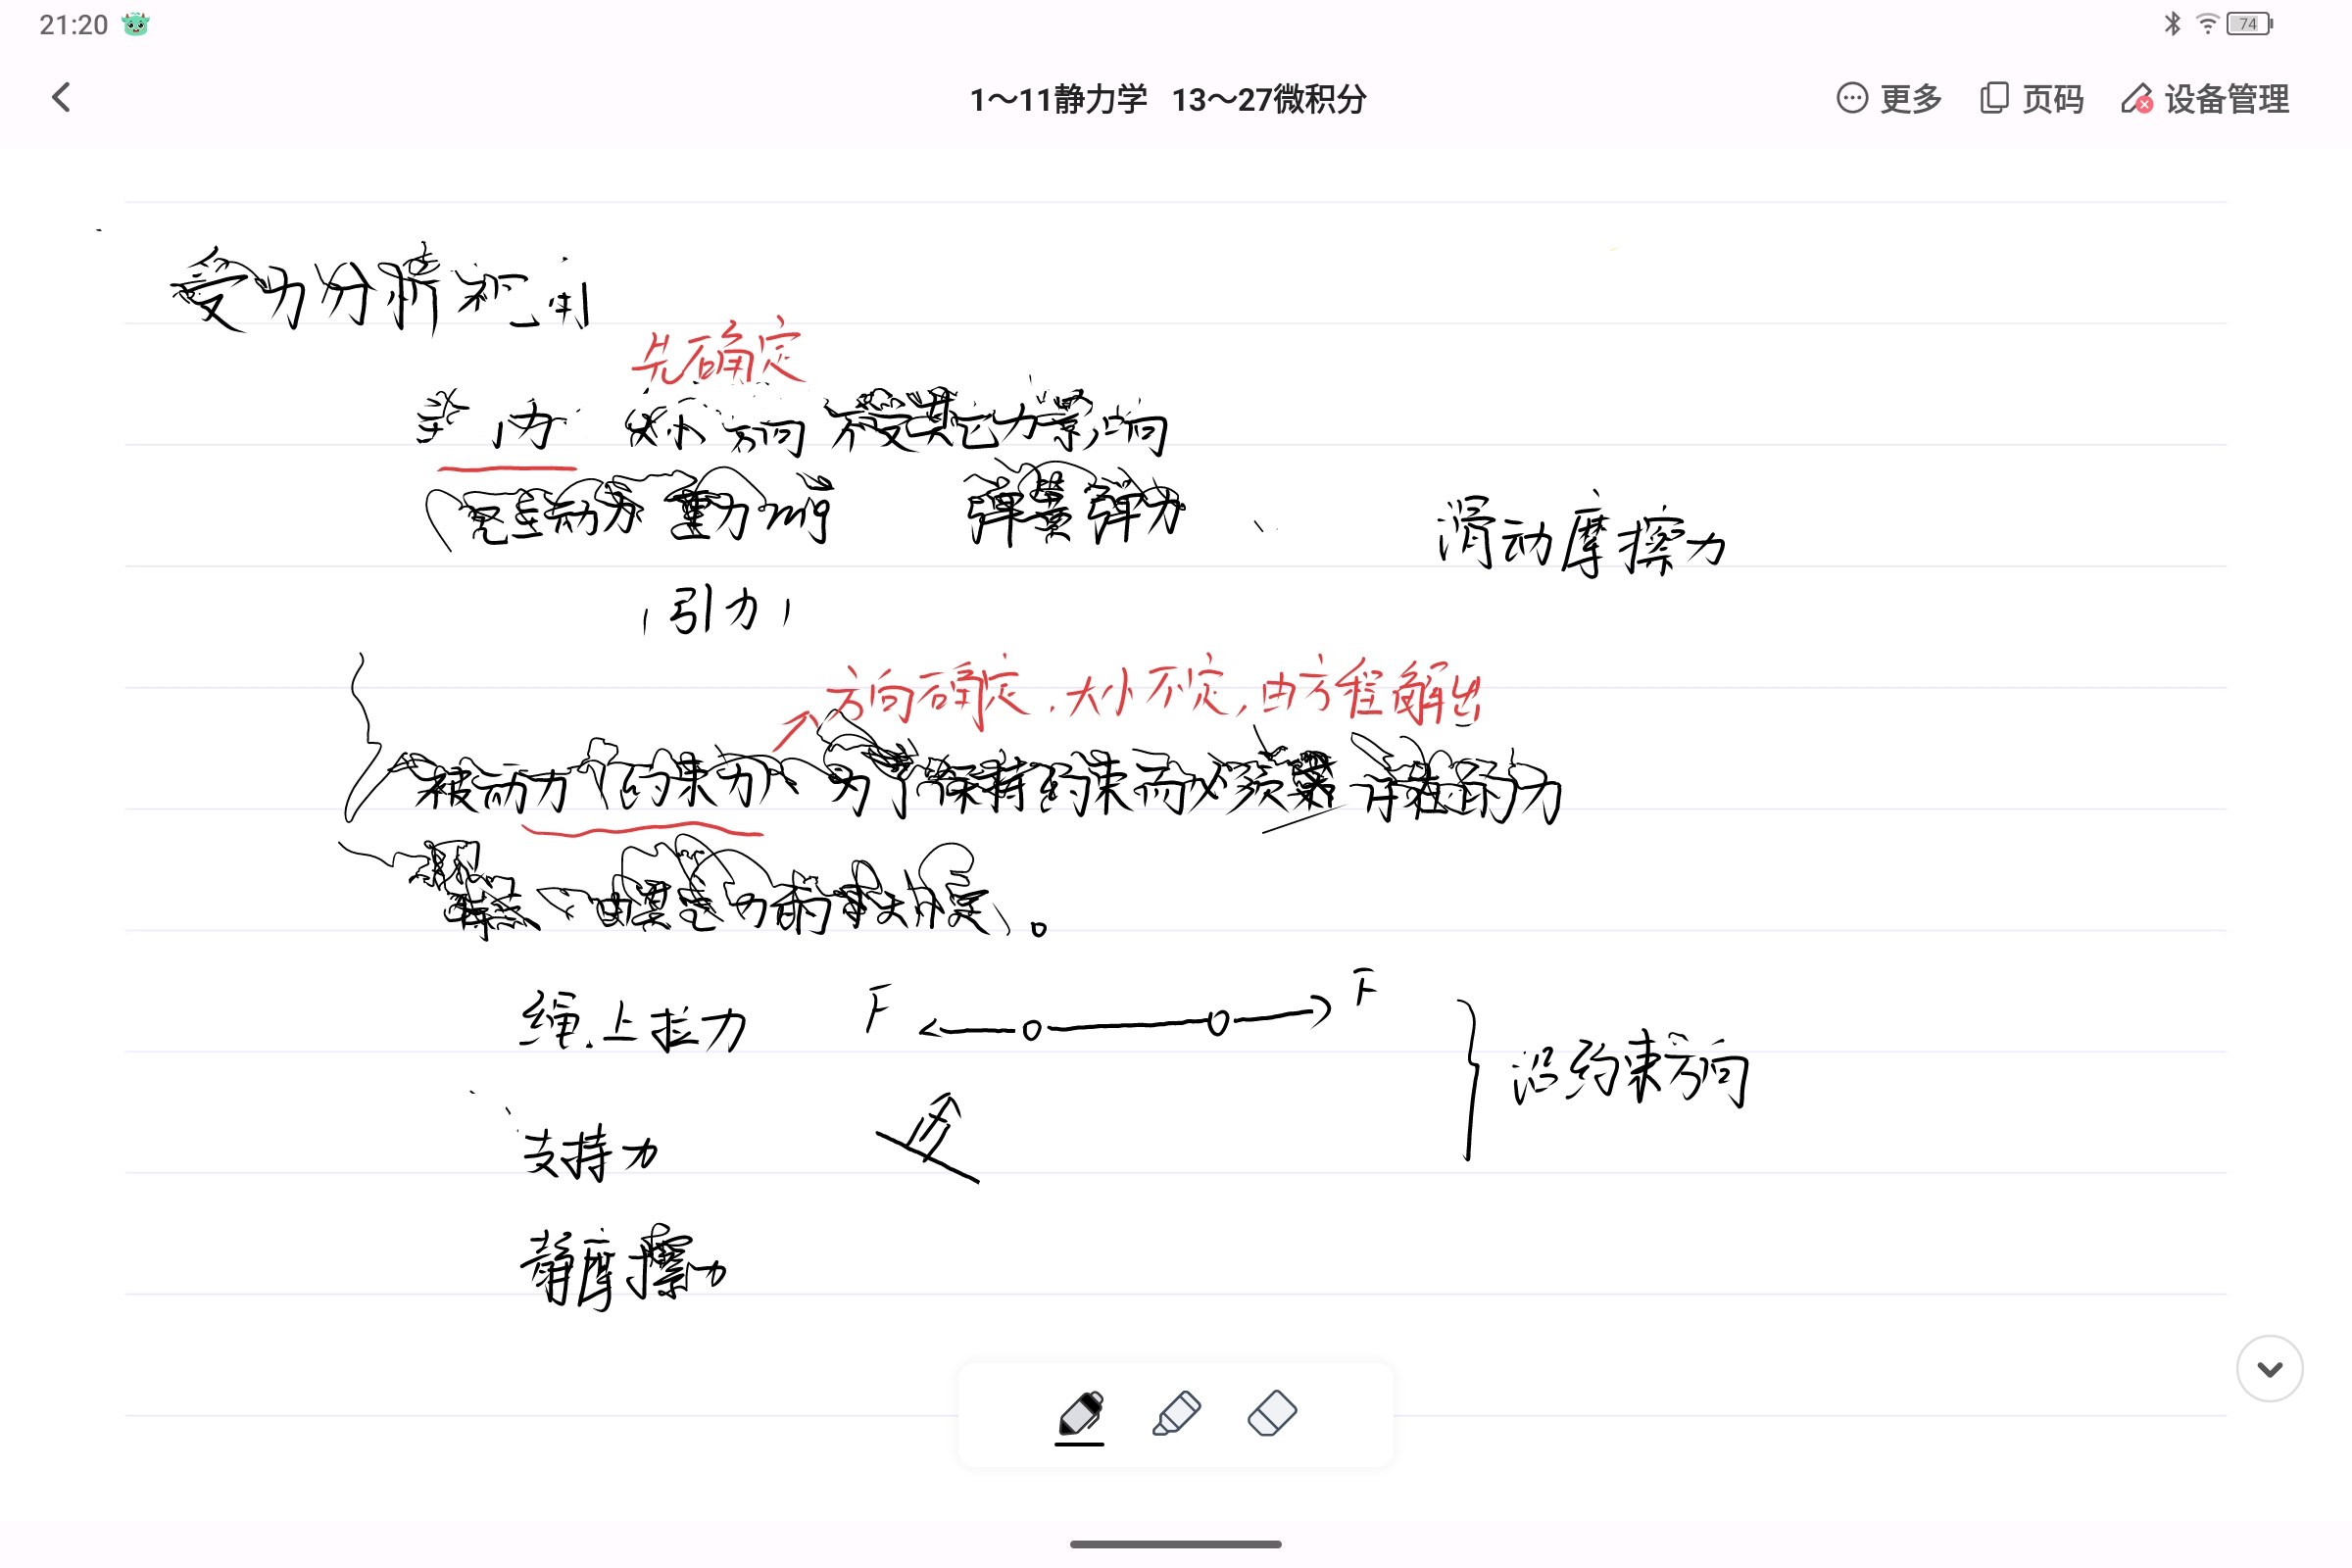 21:20
74
1～11静力学 13～27微积分
更多 页码 设备管理
受力分析
先确定
主动 大小方向不受其它力影响
重力mg 弹簧弹力、 滑动摩擦力
(引力)
方向确定，大小不定，由方程解出
被动力(约束力) 为了保持约束而必须存在的力
绳上拉力 F F
沿约束方向
支持力
静摩擦力